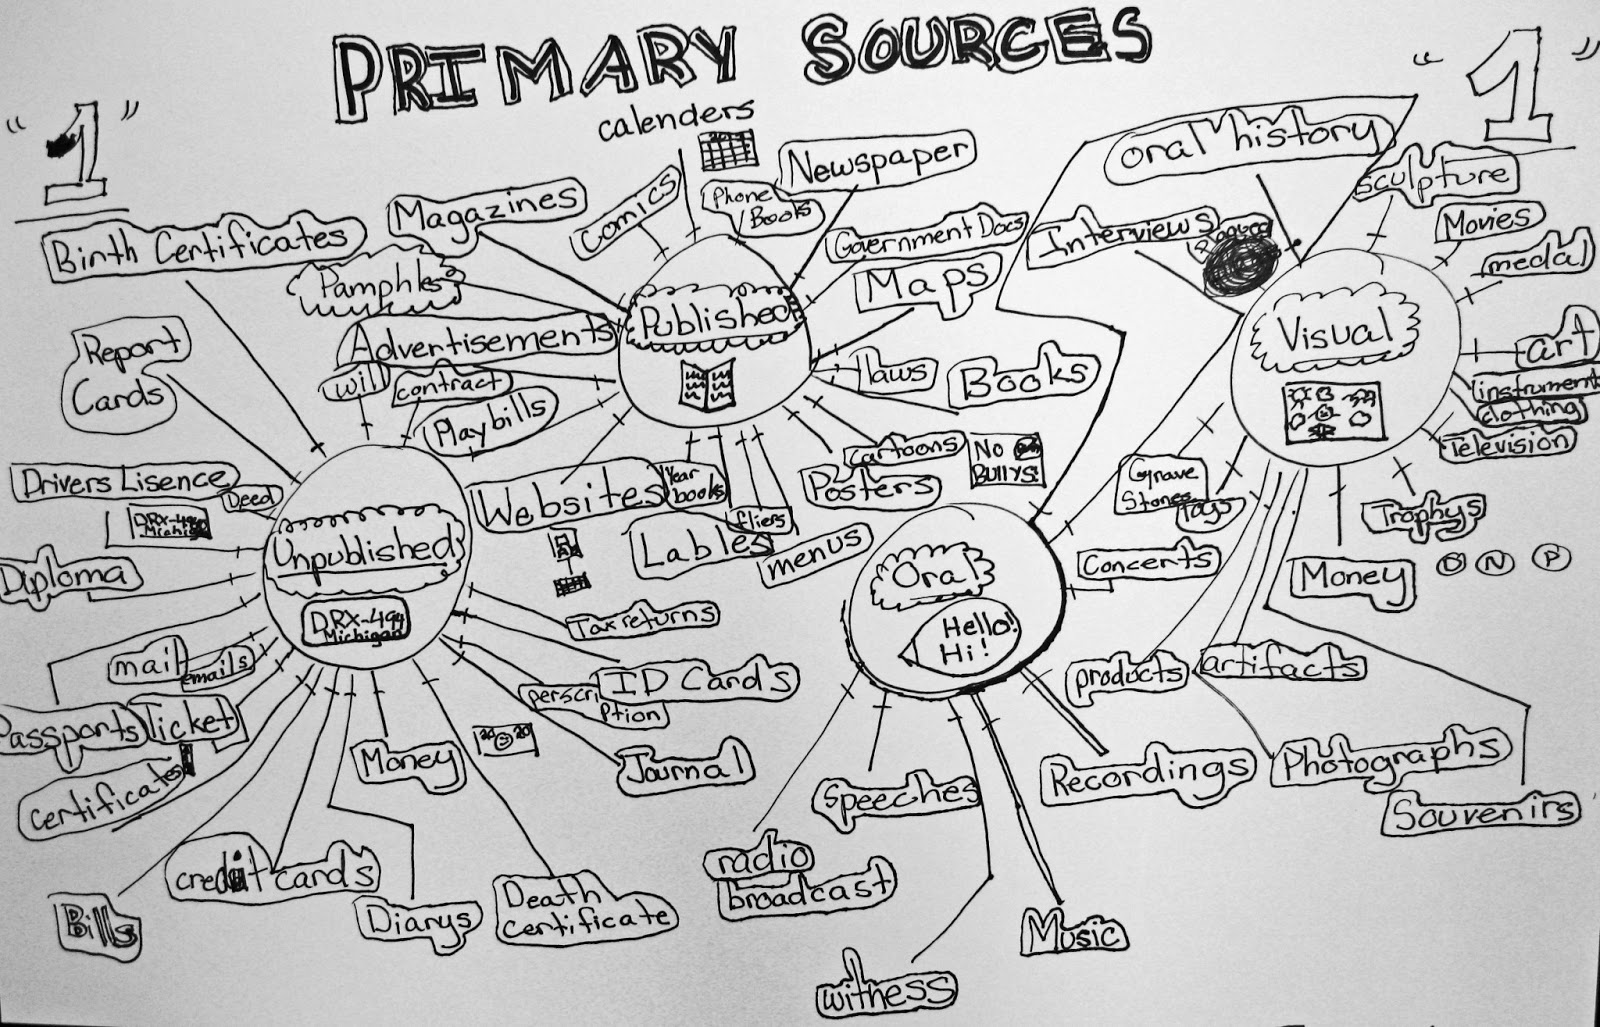 PRIMARY SOURCES
"1"
"1"
calenders
Comics
Phone
Books
Newspaper
Magazines
Birth Certificates
Pamphlets
Government Docs
Maps
Published
Advertisements
laws
Books
will
contract
Playbills
Websites
Year
books
Lables
fliers
menus
cartoons
Posters
NO
BULLYS!
Report
Cards
Drivers Lisence
Deed
DRX-494
Michigan
Unpublished
DRX-494
Michigan
Diploma
mail
emails
Passports
Ticket
certificates
Bills
credit cards
Money
Diarys
Death
certificate
Taxreturns
ID Cards
perscri
ption
20 20
Journal
oral history
Interviews
sculpture
Movies
medal
Visual
art
instrument
clothing
Television
Grave
Stones
Toys
Trophys
Money
D N P
Concerts
Oral
Hello!
Hi!
products
artifacts
Photographs
Souvenirs
Recordings
Speeches
radio
broadcast
Music
witness